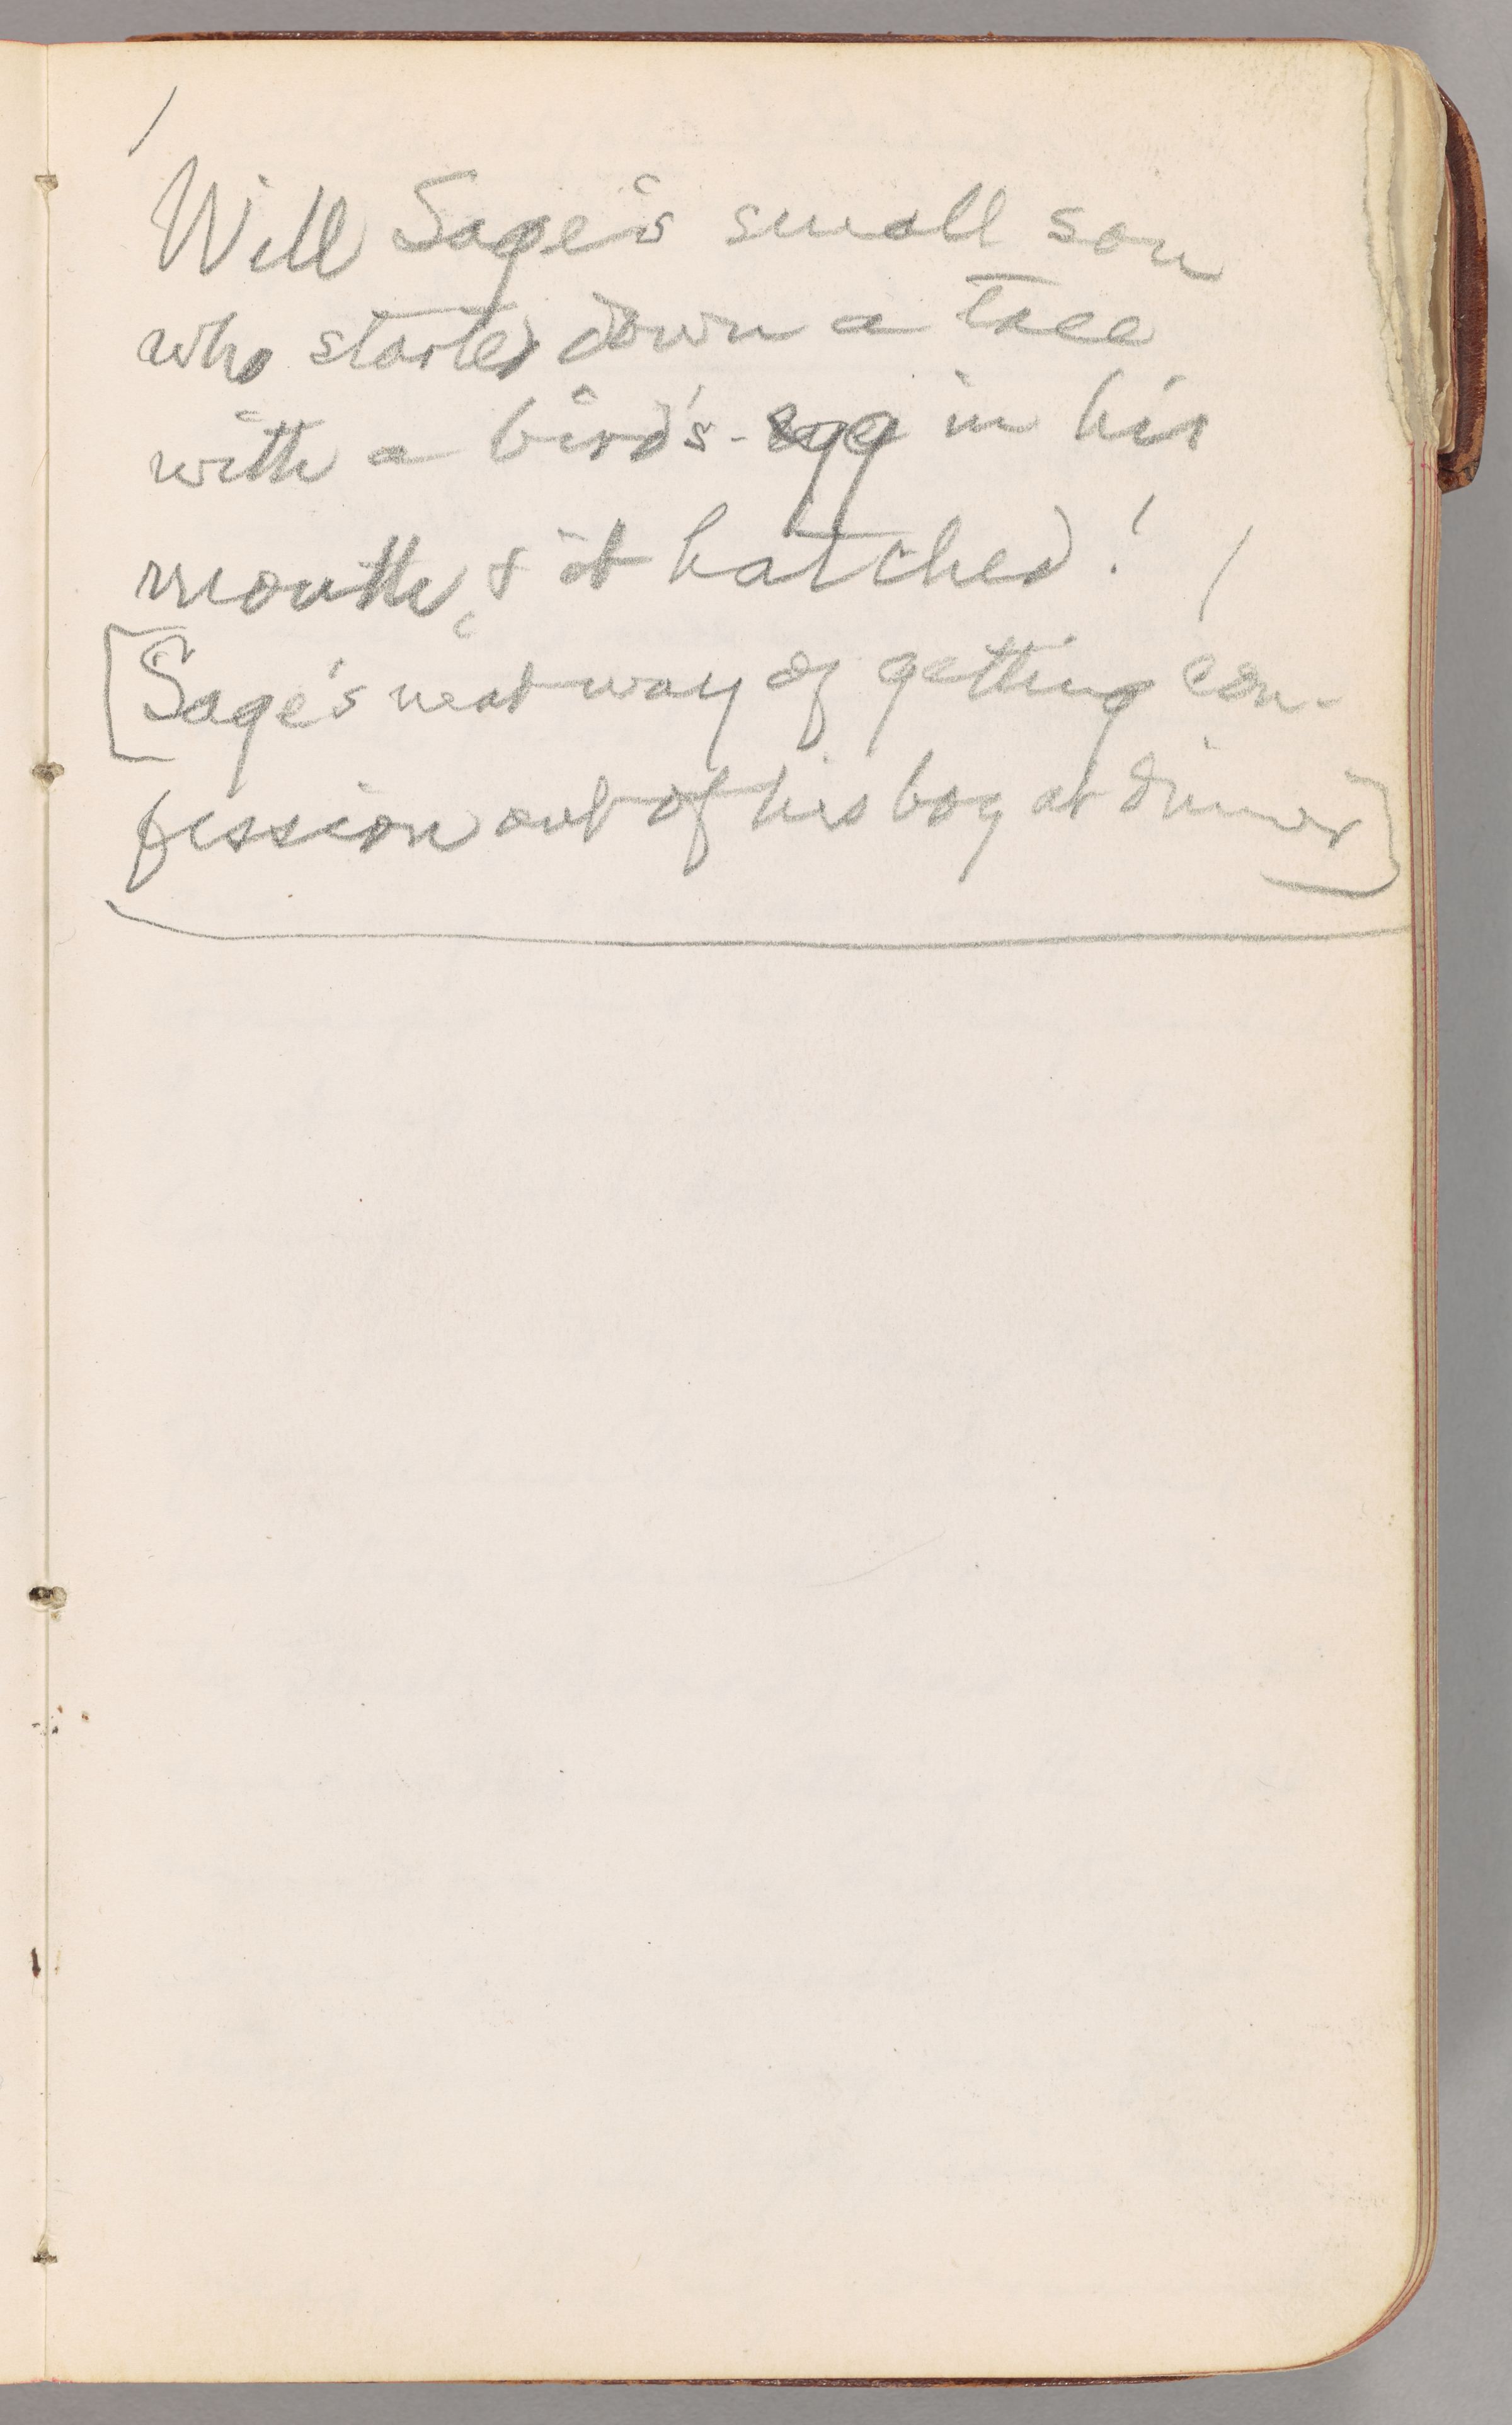 Will Sage's small son
who started down a tree
with a bird's-egg in his
mouth, & it hatched!
[Sage's neat way of getting con-
fession out of his boy at dinner]